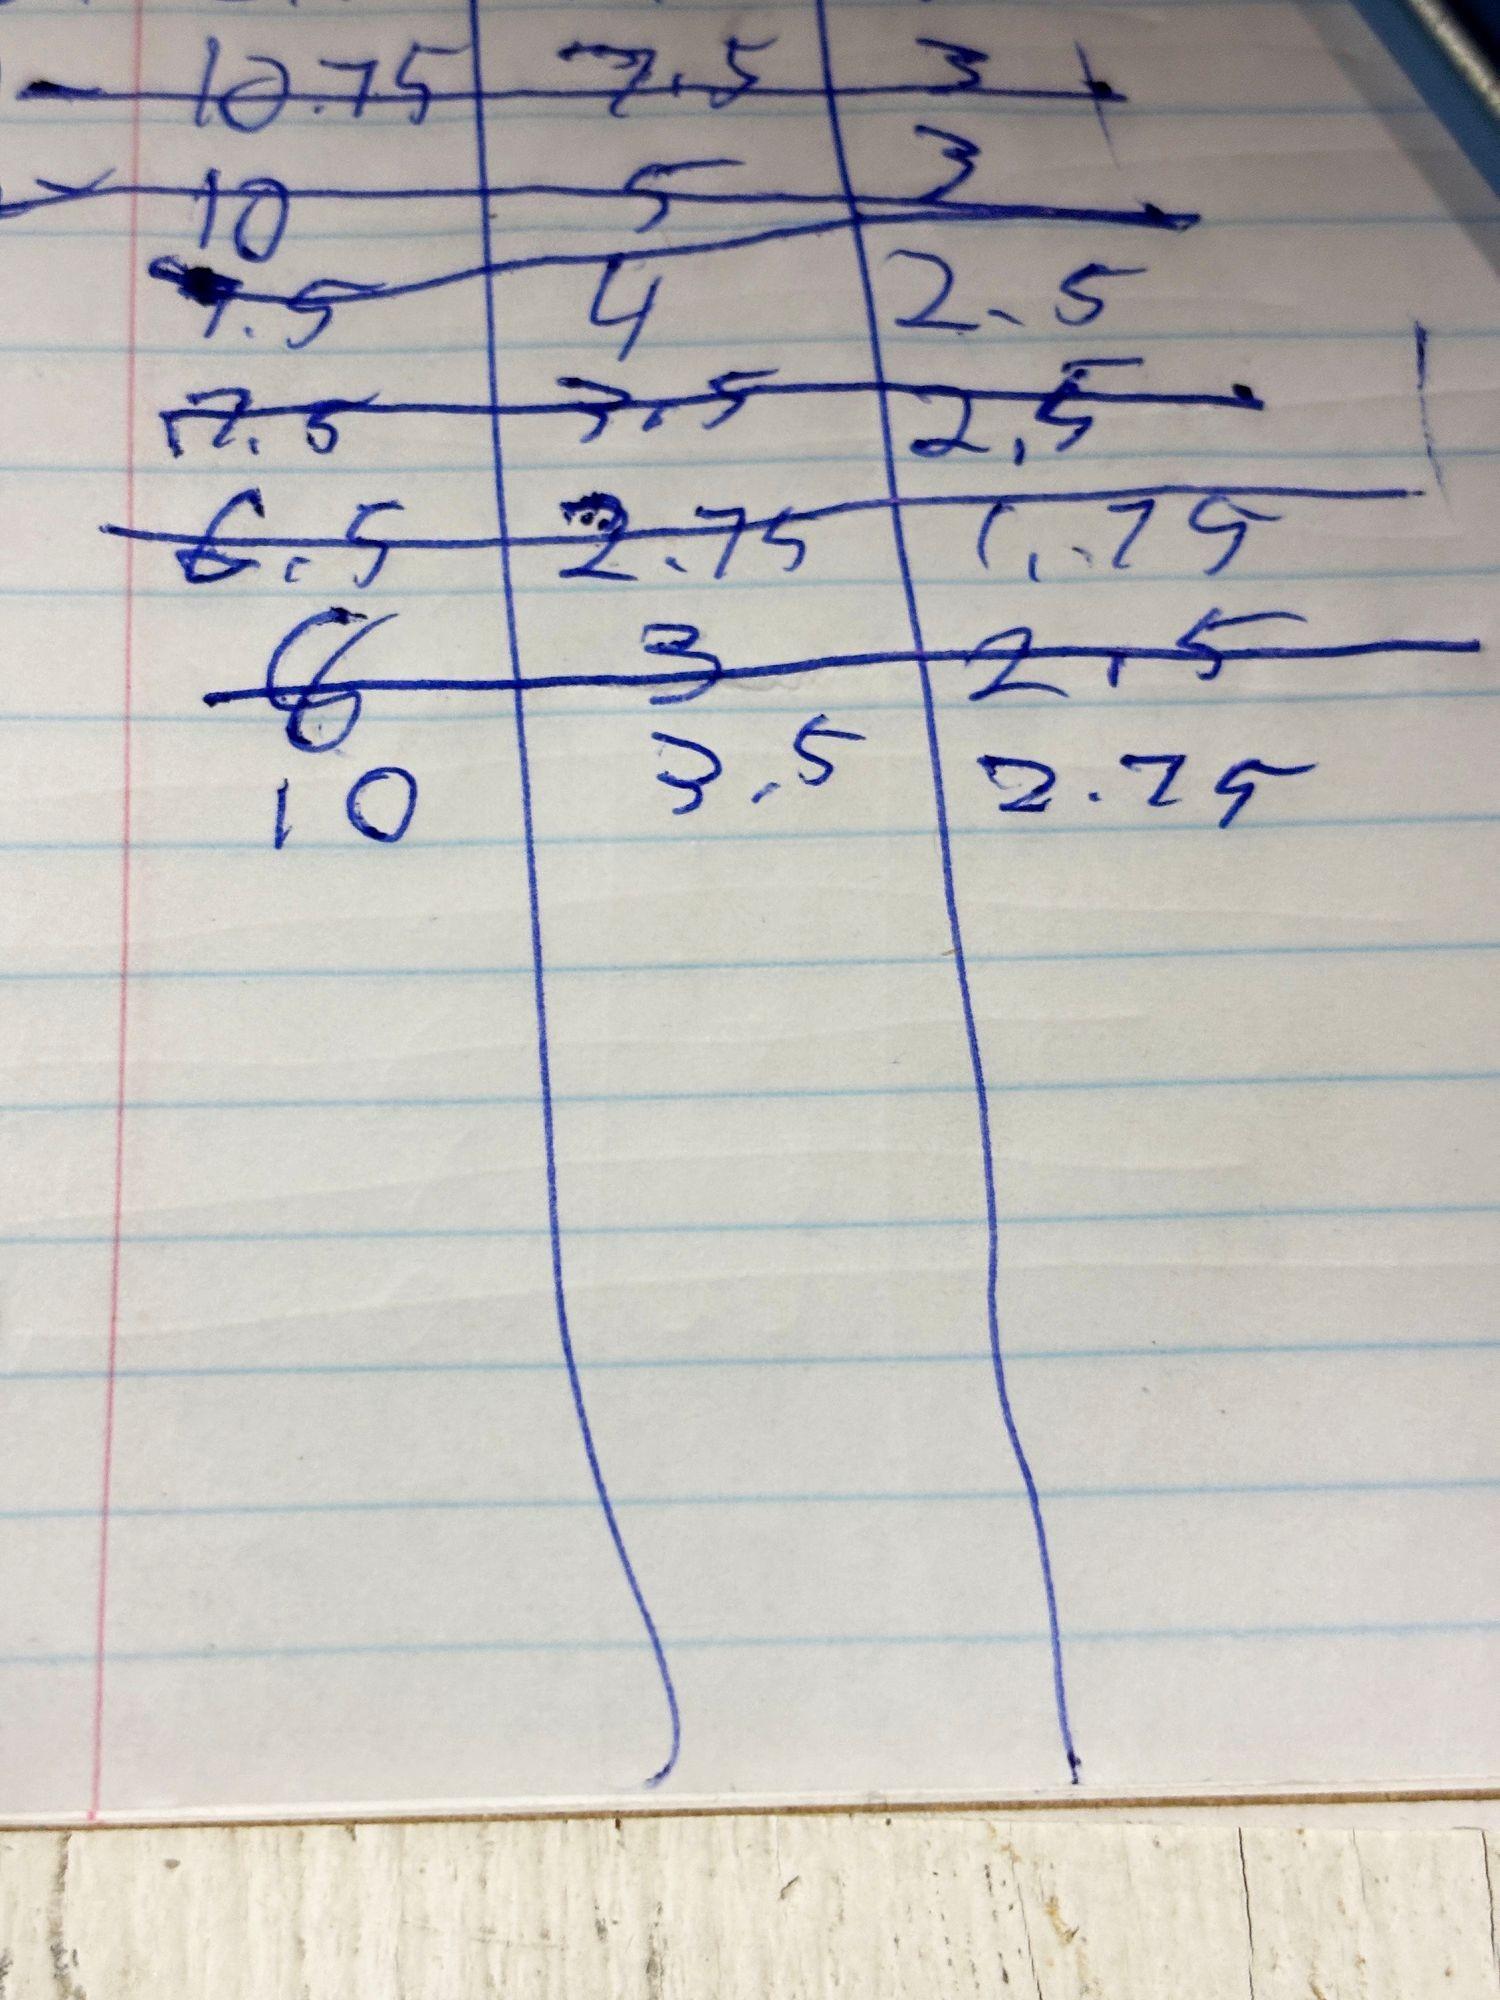 10.75 7.5 3
10 5 3
7.5 4 2.5
7.5 3.5 2.5
6.5 2.75 1.75
6 3 2.5
10 3.5 2.75